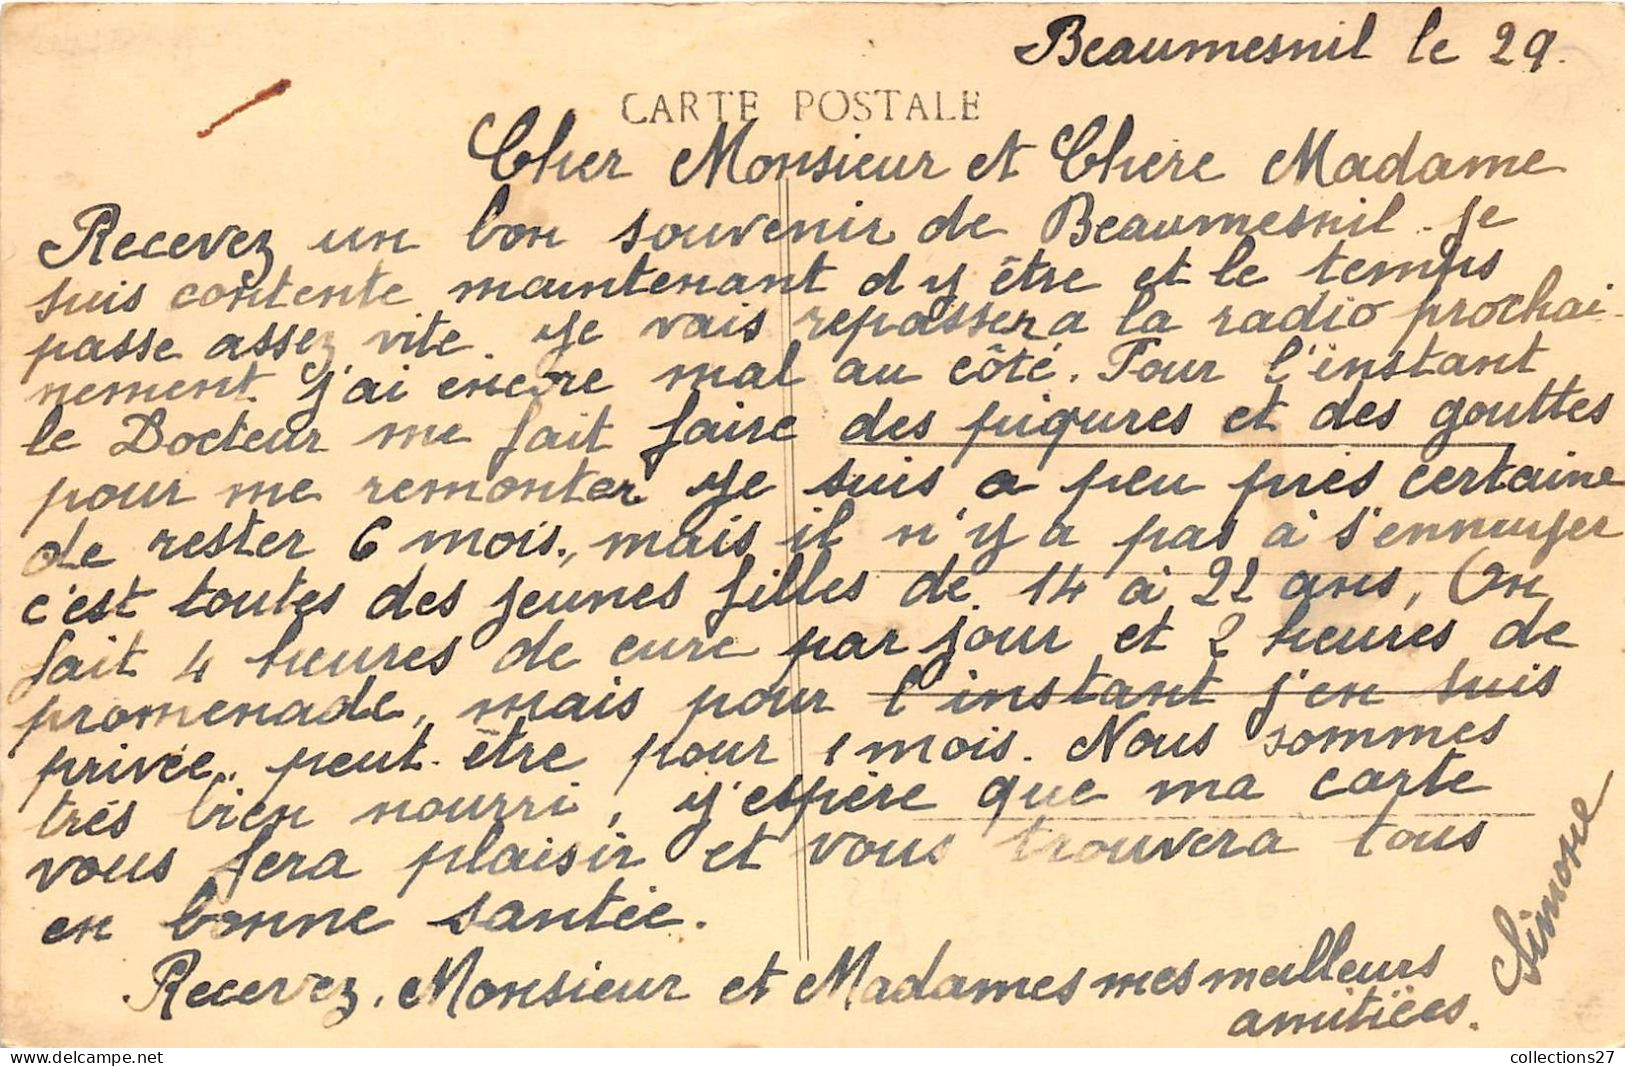 Beaumesnil le 29.
CARTE POSTALE
Cher Monsieur et Chère Madame
Recevez un bon souvenir de Beaumesnil. Je
suis contente maintenant d y être et le temps
passe assez vite. Je vais repassera la radio prochai-
nement j'ai encore mal au côté. Pour l'instant
le Docteur me fait faire des piqures et des gouttes
pour me remonter je suis a peu près certaine
de rester 6 mois, mais il n'y a pas à s'ennuyer
c'est toutes des jeunes filles de 14 à 22 ans, On
fait 4 heures de cure par jour et 2 heures de
promenade, mais pour l'instant j'en suis
privée, peut-être pour 1 mois. Nous sommes
très bien nourri, j'espère que ma carte
vous fera plaisir et vous trouvera tous
en bonne santée.
Recevez, Monsieur et Madames mes meilleurs
amitiées.
Simone
collections27